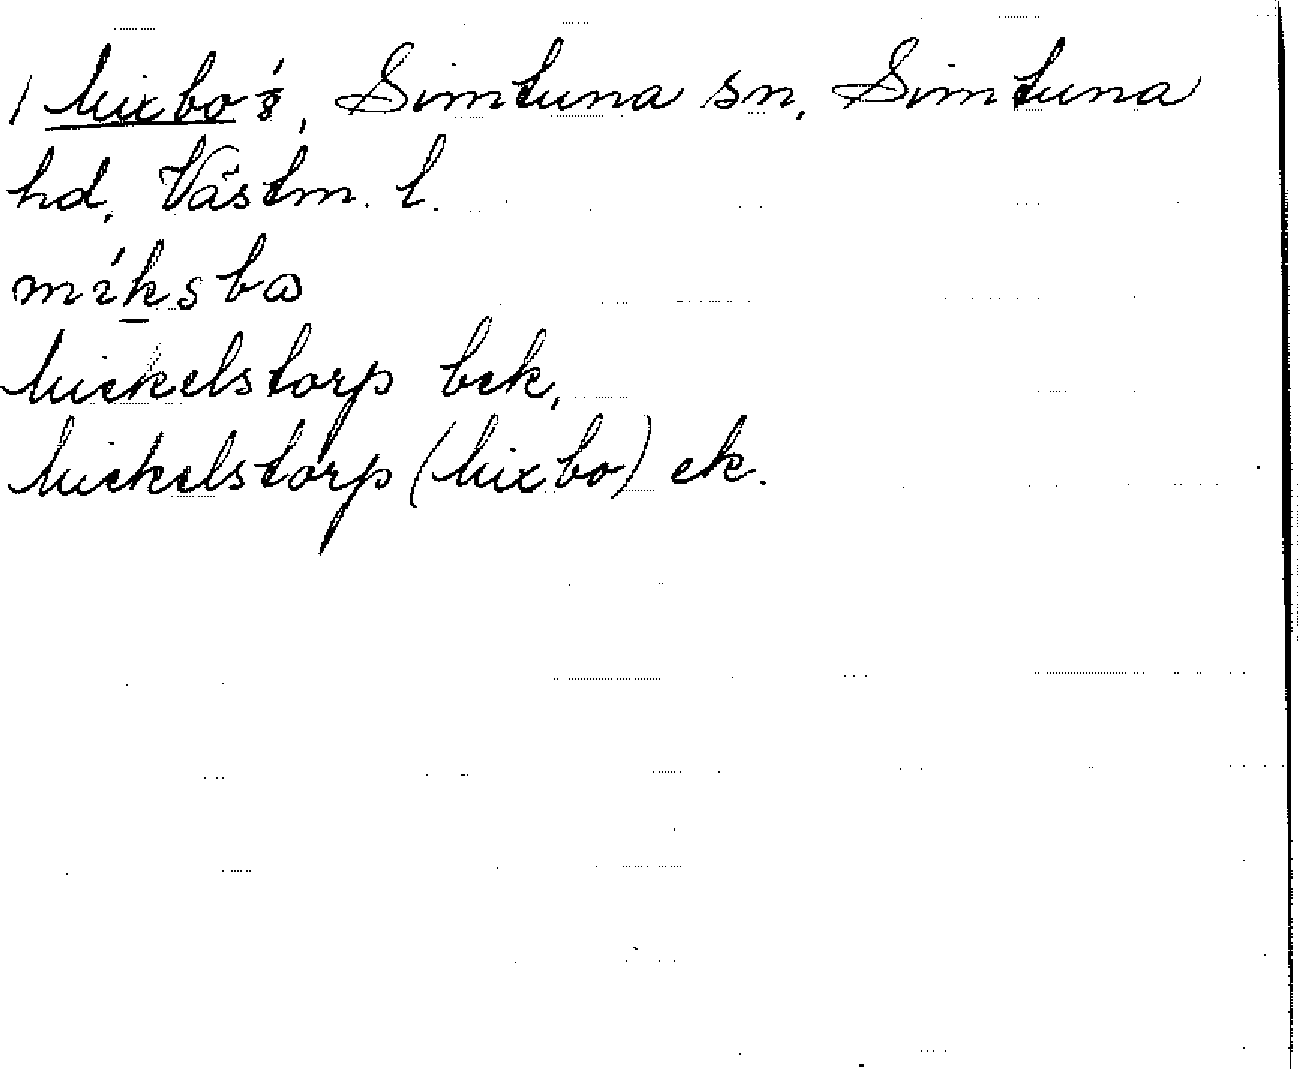 / Mixbo s, Simtuna sn, Simtuna
hd, Västm. l.
míksbω
Mickelstorp bek,
Mickelstorp (Mixbo) ek.